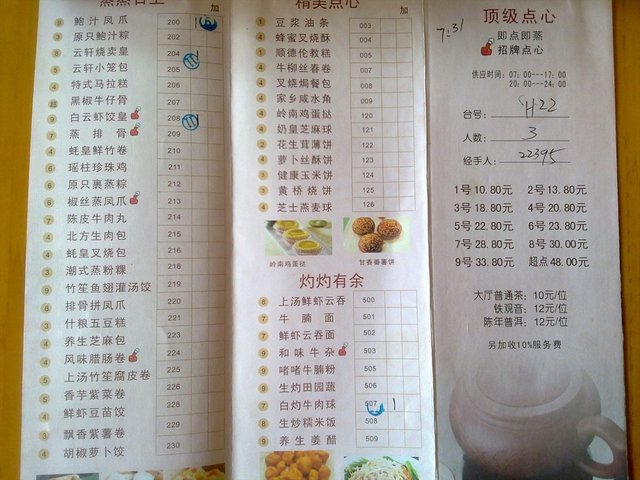 蒸蒸日上
加
⑤ 鲍汁凤爪 200 1
③ 原只鲍汁粽 202
⑧ 云轩烧卖皇 204 1
⑤ 云轩小笼包 205
④ 特式马拉糕 206
超 黑椒牛仔骨 207
⑨ 白云虾饺皇 208 1
⑦ 蒸排骨 209
④ 蚝皇鲜竹卷 210
⑥ 瑶柱珍珠鸡 211
⑥ 原只裹蒸粽 212
⑥ 椒丝蒸凤爪 213
⑦ 陈皮牛肉丸 214
④ 北方生肉包 215
④ 蚝皇叉烧包 216
③ 潮式蒸粉粿 218
⑨ 竹笙鱼翅灌汤饺 219
⑧ 排骨拼凤爪 220
③ 什粮五豆糕 221
④ 养生芝麻包 223
④ 风味腊肠卷 224
⑤ 上汤竹笙腐皮卷 225
香芋紫菜卷 228
④ 鲜虾豆苗饺 229
③ 飘香紫薯卷
④ 胡椒萝卜饺 230
精美点心
加
① 豆浆油条 003
④ 蜂蜜叉烧酥 004
① 顺德伦教糕 005
④ 牛柳丝春卷 007
④ 叉烧焗餐包 008
④ 家乡咸水角 009
④ 岭南鸡蛋挞 120
④ 奶皇芝麻球 121
② 花生茸薄饼 122
④ 萝卜丝酥饼 123
③ 健康玉米饼 124
③ 黄桥烧饼 125
④ 芝士燕麦球 126
岭南鸡蛋挞
甘香番薯饼
灼灼有余
⑧ 上汤鲜虾云吞 500
⑦ 牛腩面 501
⑦ 鲜虾云吞面 502
⑨ 和味牛杂 503
⑨ 啫啫牛腩粉 505
⑨ 生灼田园蔬 506
⑦ 白灼牛肉球 507 1
⑧ 生炒糯米饭 508
⑨ 养生姜醋 509
7:31
顶级点心
即点即蒸
招牌点心
供应时间：07：00---17：00
20：00---24：00
台号：H22
人数：3
经手人：22395
1号 10.80元 2号 13.80元
3号 18.80元 4号 20.80元
5号 22.80元 6号 23.80元
7号 28.80元 8号 30.00元
9号 33.80元 超点 48.00元
大厅普通茶：10元/位
铁观音：12元/位
陈年普洱：12元/位
另加收10%服务费